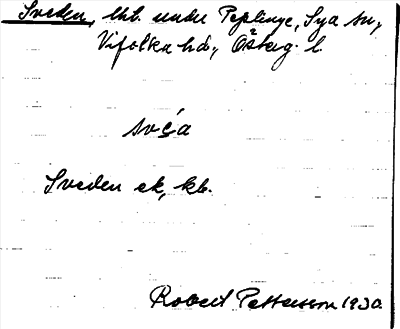 Sveden, lht. under Peplinge, Sya sn,
Vifolka hd., Österg. l.
svęa
Sveden ek, kb.
Robert Pettersson 1930.